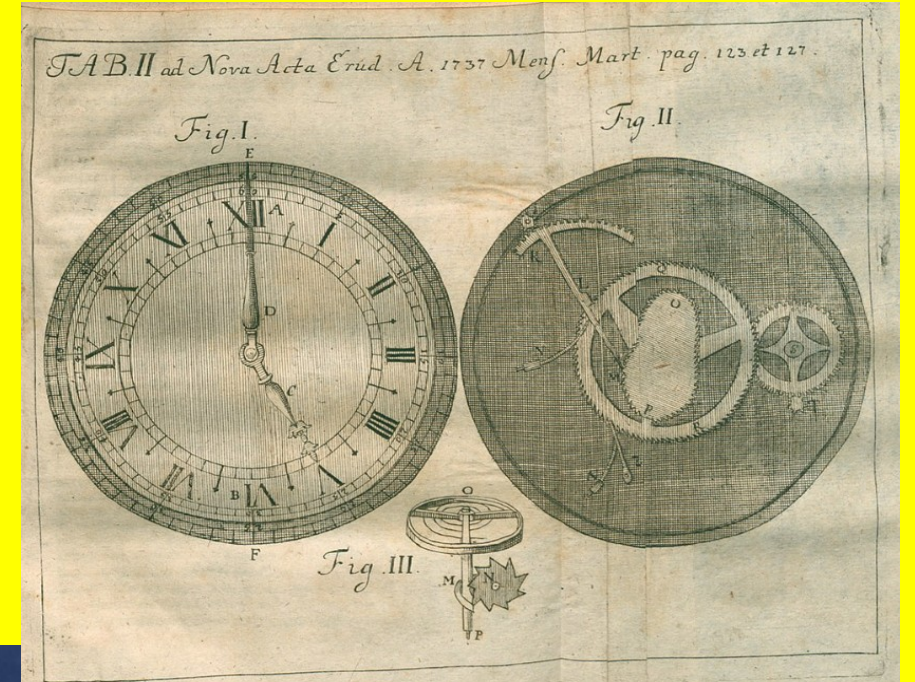 TAB. II ad Nova Acta Erud. A. 1737 Menſ. Mart. pag. 123 et 127.
Fig. I.
Fig. II.
E
XII A
XI
I
X
II
D
IX
III
C
VIII
IIII
VII
V
B VI
F
K
L
Q
O
M
P
R
S
T
Fig. III.
O
M
N
P